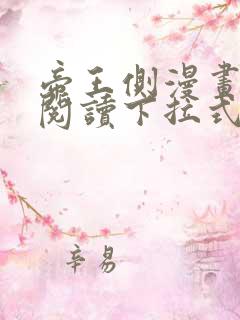 帝王側漫畫
閱讀下拉式
辛易